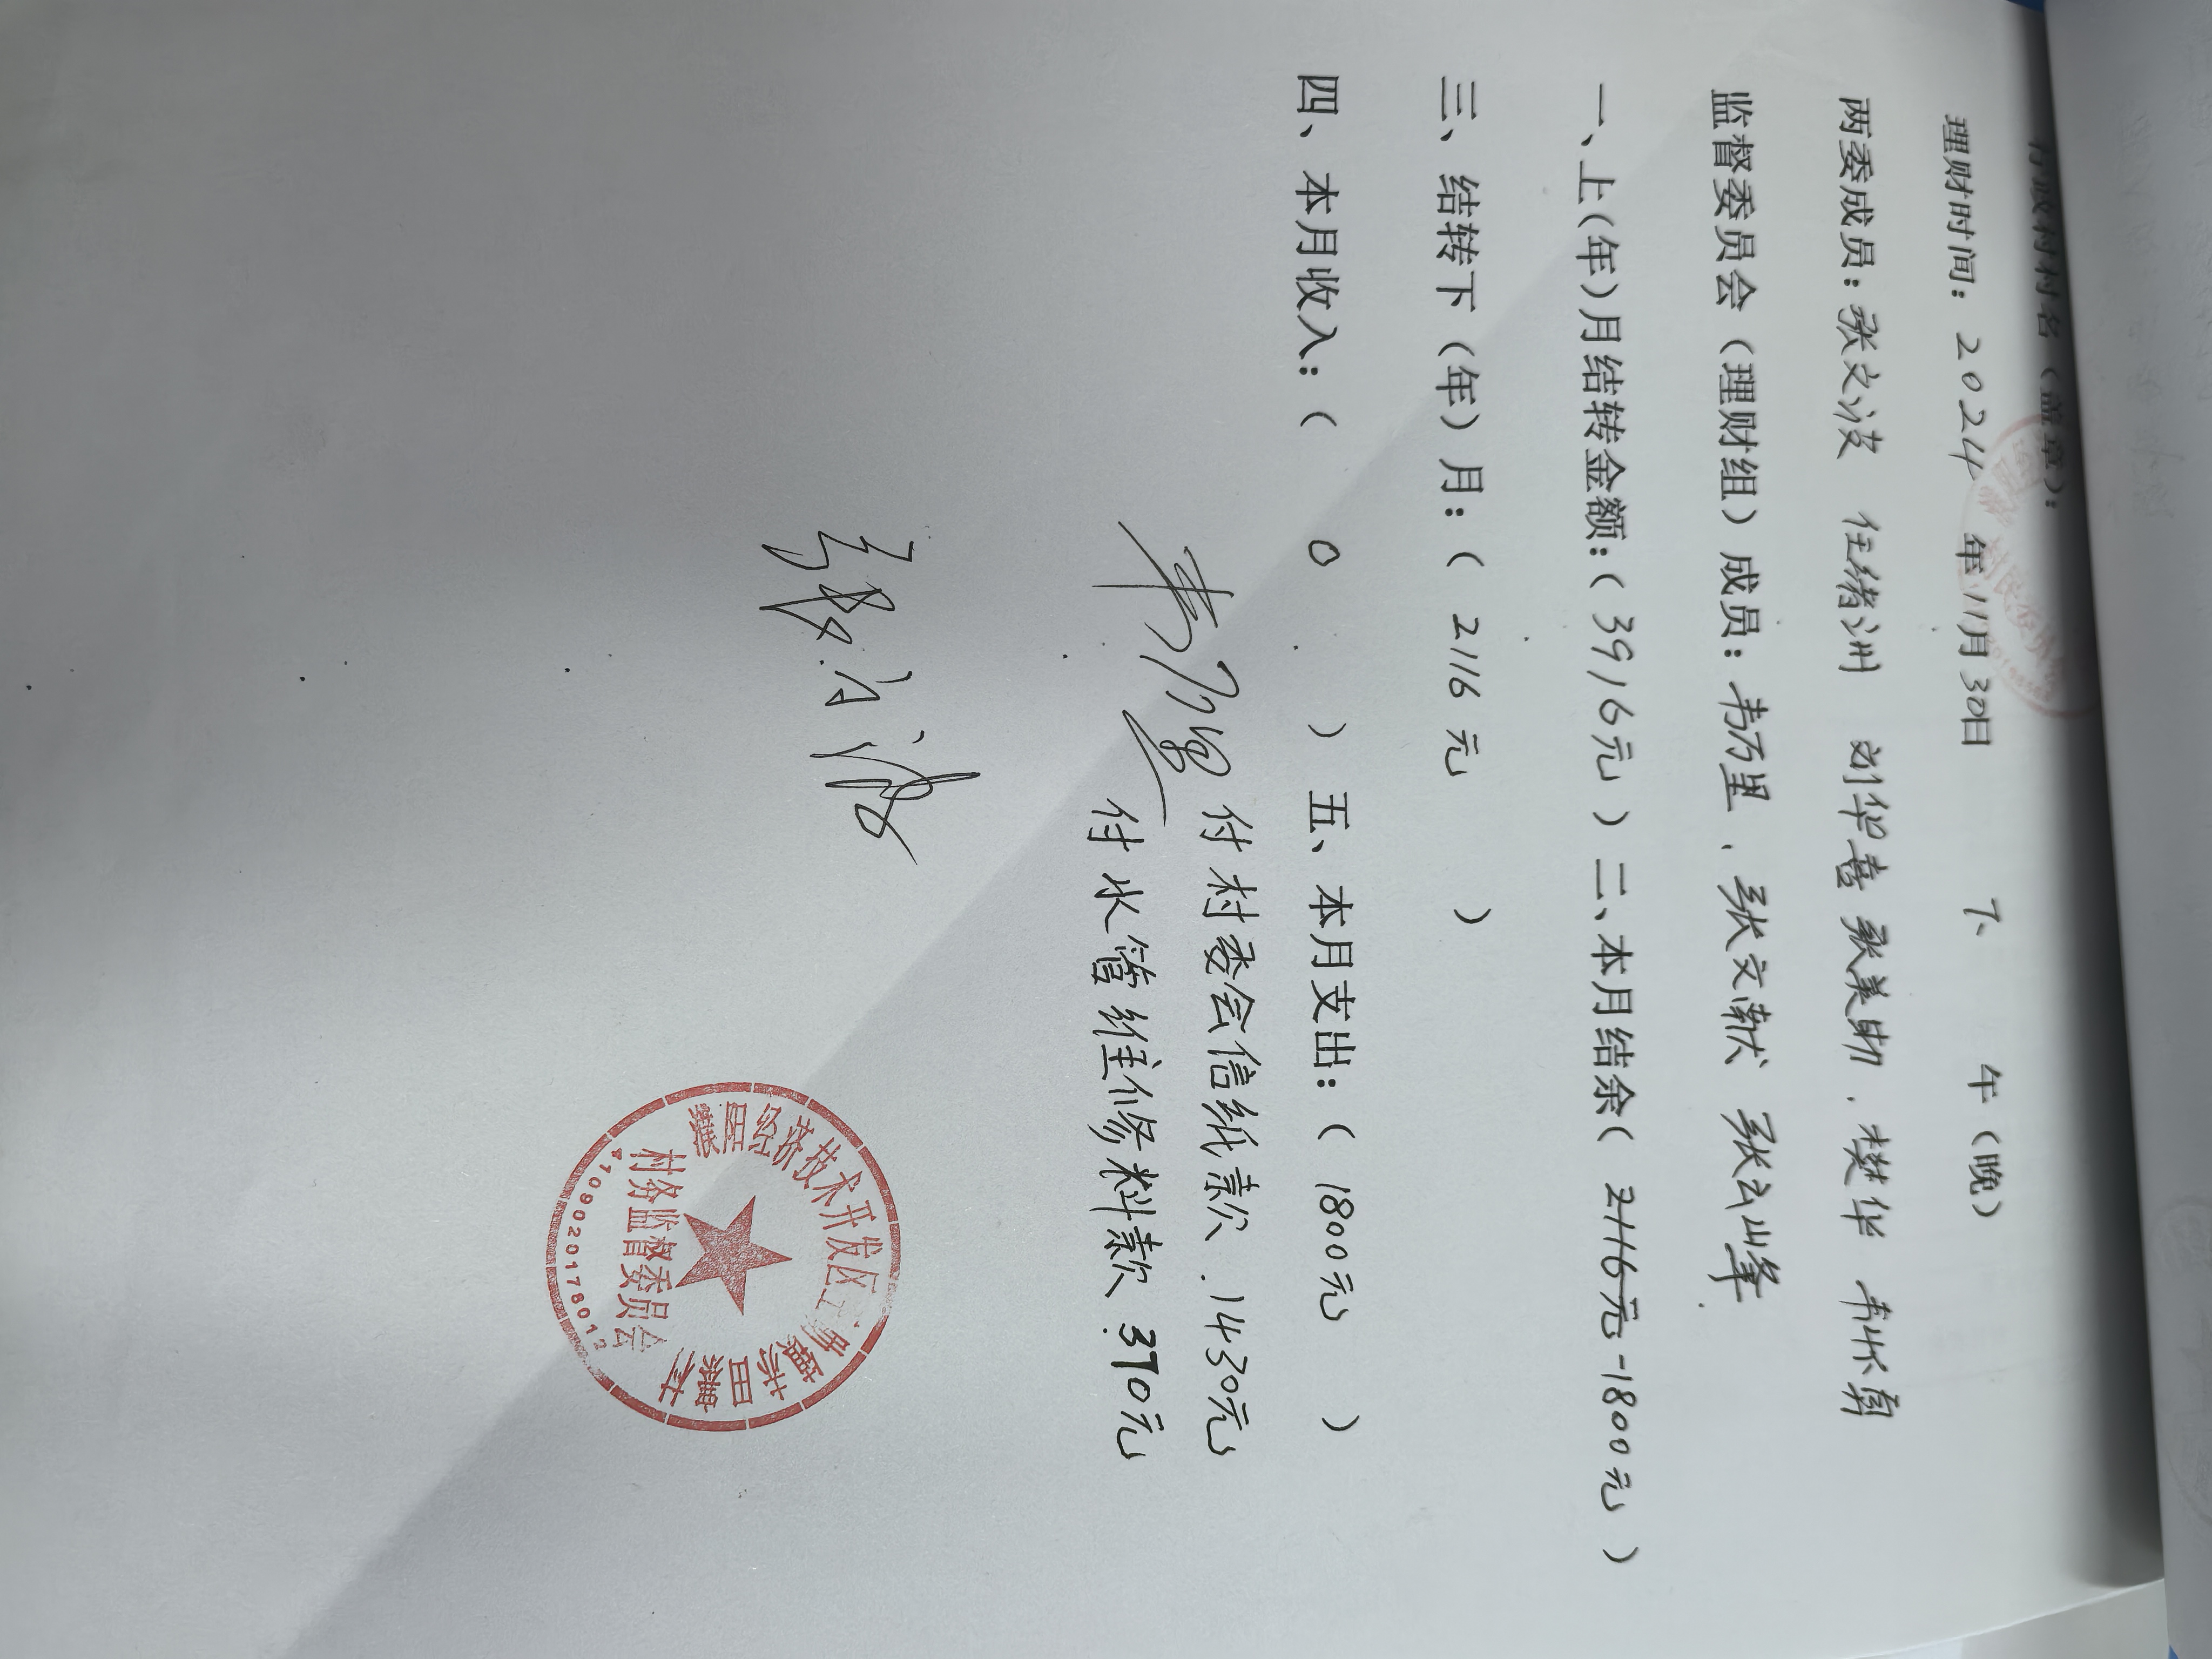 行政村村名（盖章）：
理财时间：2024年11月30日 下 午（晚）
两委成员：张文波 任绪洲 刘华喜 张美勤、樊华 韦怀勇
监督委员会（理财组）成员：韦乃里、张文献 张云峰
一、上（年）月结转金额：（3916元）二、本月结余（2116元-1800元）
三、结转下（年）月：（2116元 ）
四、本月收入：（ 0 ）五、本月支出：（1800元 ）
付村委会信纸款.1430元
付水管维修料款.370元
濮阳经济技术开发区
村务监督委员会
4109020178012